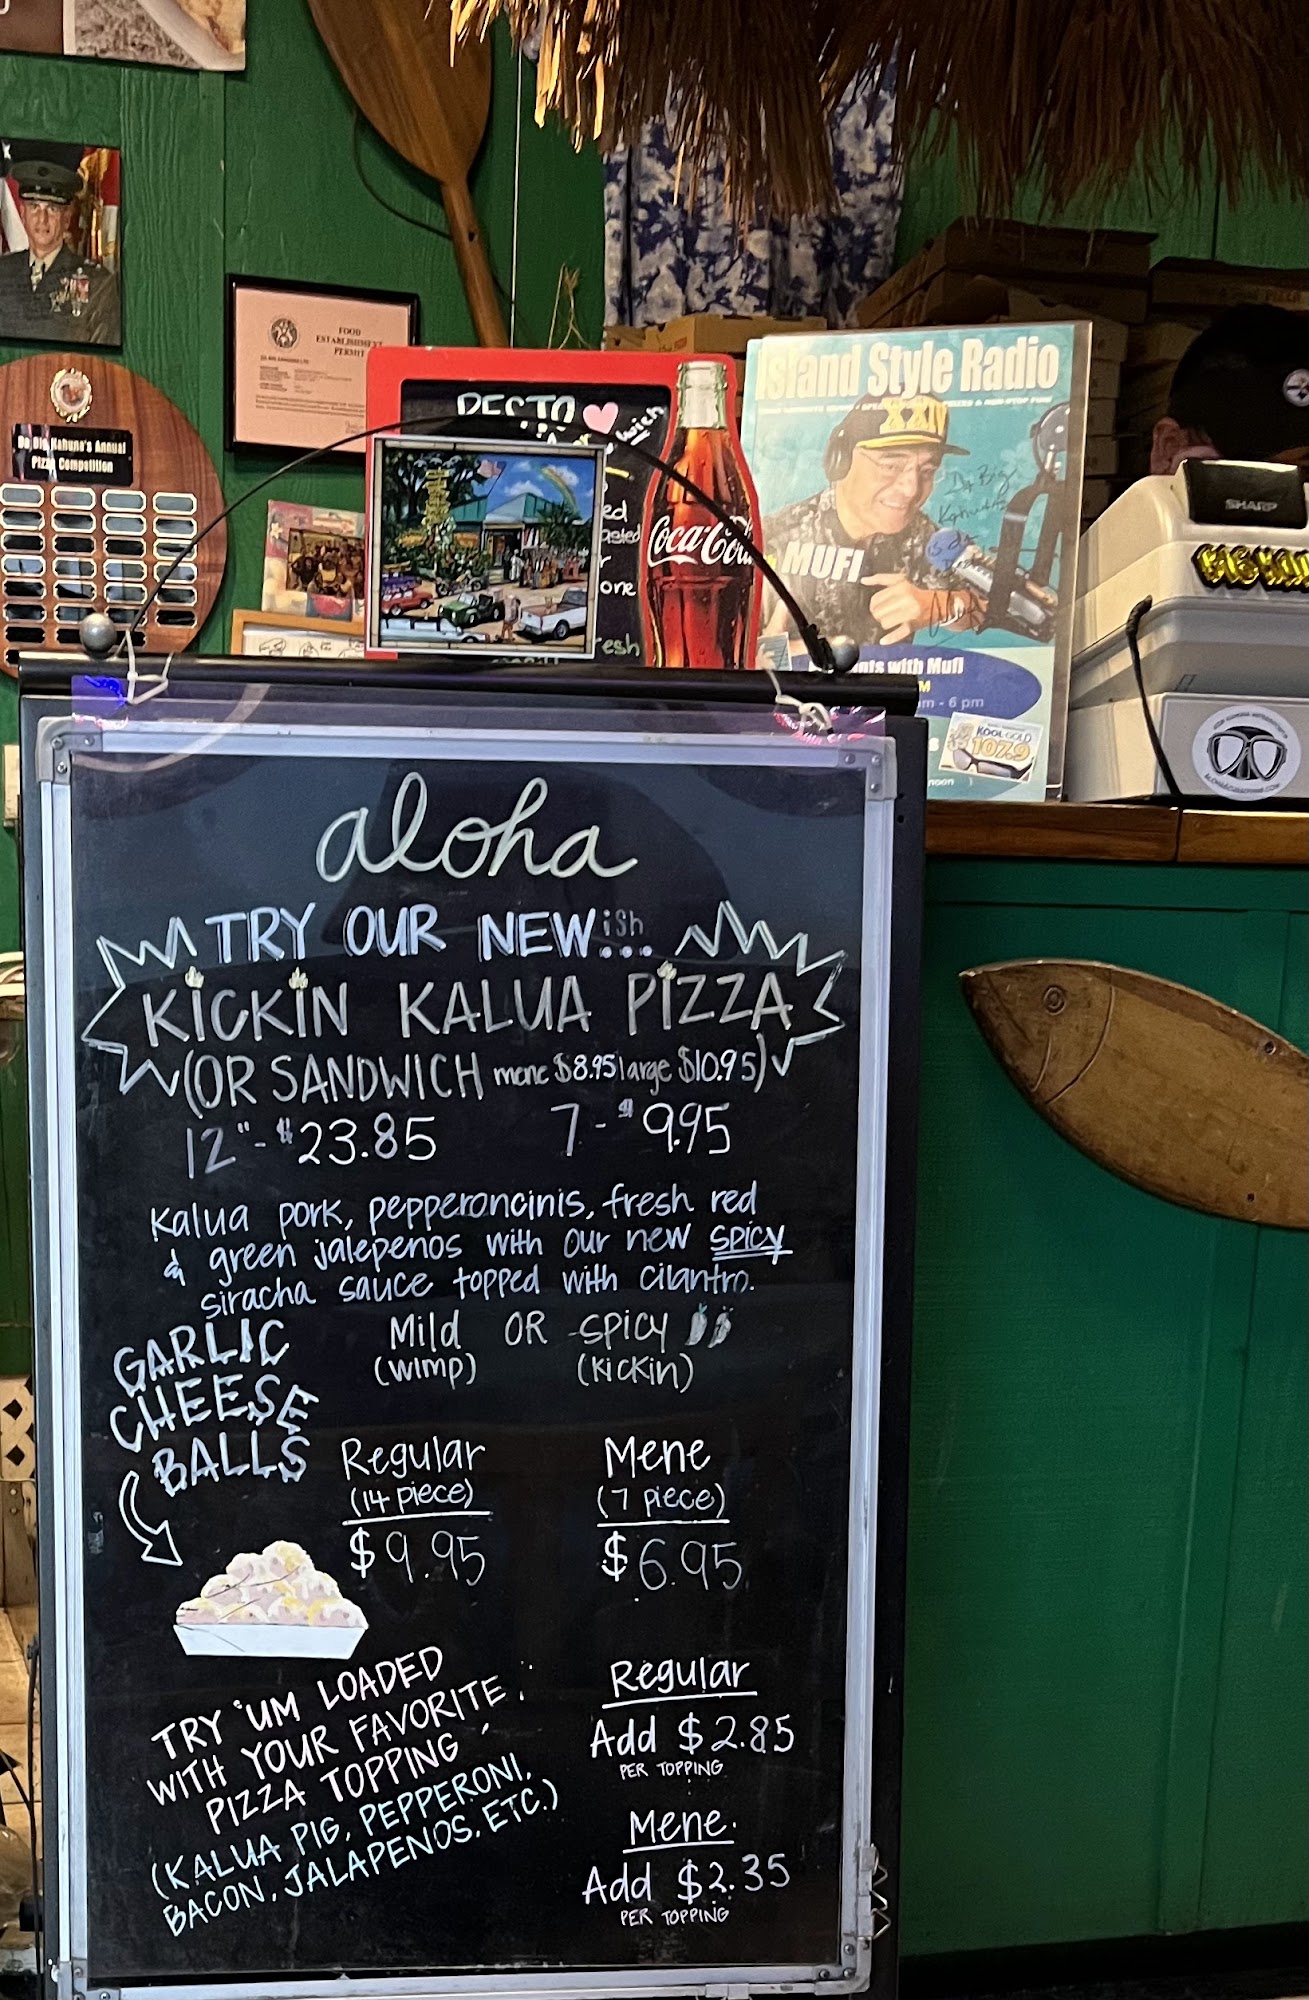 FOOD
ESTABLISHMENT
PERMIT
Da Big Kahuna's Annual
Pizza Competition
PESTO
Coca-Cola
esh
one
Island Style Radio
XXIV
MUFI
with Mufi
- 6 pm
KOOL GOLD
107.9
noon
SHARP
aloha
TRY OUR NEWish...
KICKIN KALUA PIZZA
(OR SANDWICH mene $8.95 large $10.95)
12"- $23.85 7 - $9.95
Kalua pork, pepperoncinis, fresh red
& green jalepenos with our new spicy
siracha sauce topped with cilantro.
Mild OR spicy
(wimp) (kickin)
GARLIC
CHEESE
BALLS
Regular Mene
(14 piece) (7 piece)
$9.95 $6.95
TRY 'UM LOADED
WITH YOUR FAVORITE
PIZZA TOPPING
(KALUA PIG, PEPPERONI,
BACON, JALAPENOS, ETC.)
Regular
Add $2.85
PER TOPPING
Mene
Add $2.35
PER TOPPING